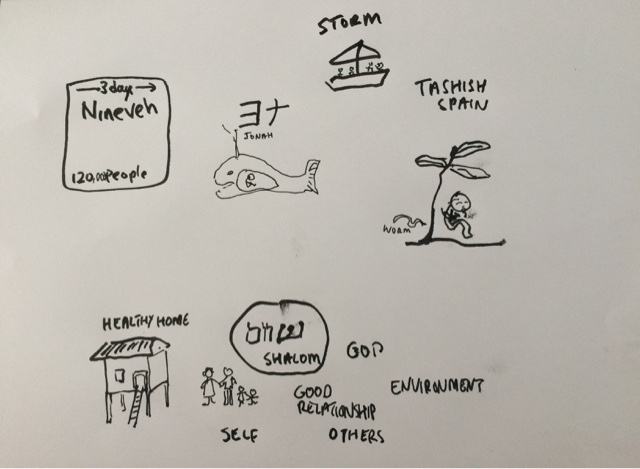 STORM
3 days
Nineveh
120,000 People
ヨナ
JONAH
TASHISH
SPAIN
WORM
HEALTHY HOME
SHALOM
GOD
GOOD
RELATIONSHIP
ENVIRONMENT
SELF
OTHERS